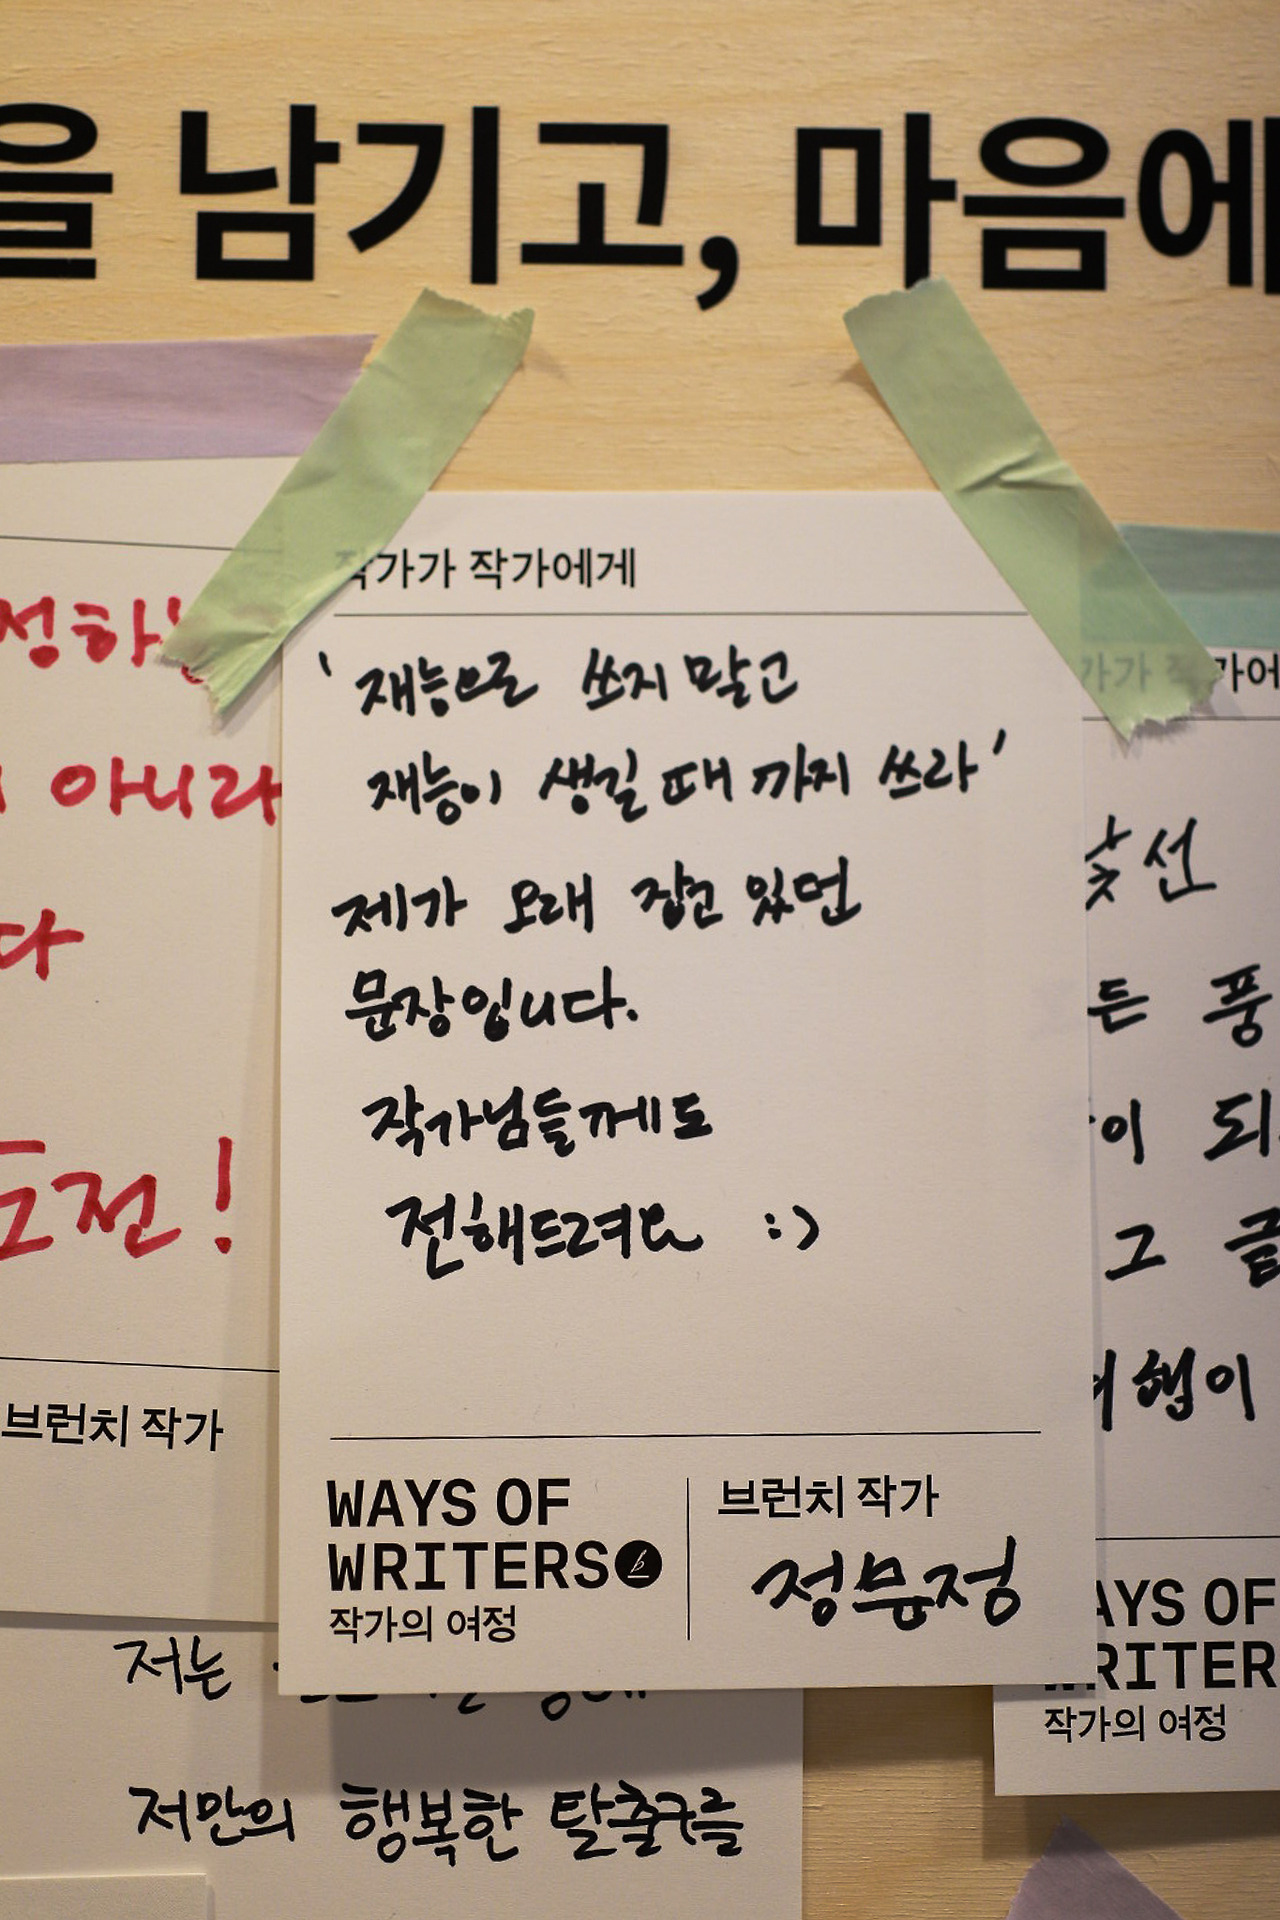 을 남기고, 마음에
작가가 작가에게
'재능으로 쓰지 말고
재능이 생길 때 까지 쓰라'
제가 오래 잡고 있던
문장입니다.
작가님들께도
전해드려요 :)
WAYS OF
WRITERS
작가의 여정
브런치 작가
정문정
아니라
다
도전!
브런치 작가
저는
저만의 행복한 탈출구를
가가 작가에
낯선
든 풍
이 되
그 끝
이
WAYS OF
WRITER
작가의 여정